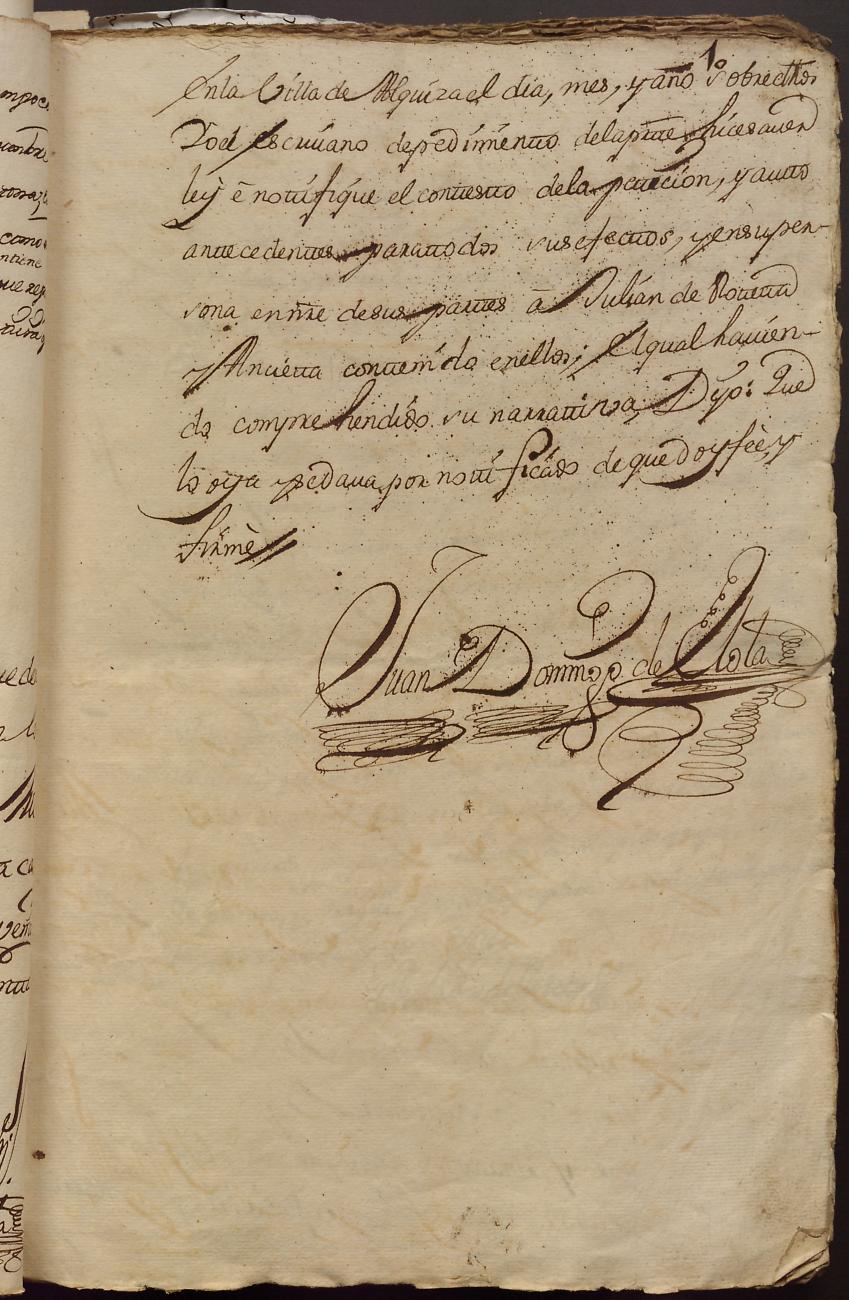 En la Villa de Alquiza el dia, mes, y año sobredhos
Yo el escriuano de pedimento dela parte hice sauer
ley è notifiqué el contesto dela peticion, y auto
antecedentes para todos sus efectos, y en su per-
sona en nre de sus partes â Julian de Rotetta
y Ancietta contenido en ellos; el qual hauien-
do comprehendido su narrattiva, Dijo: Que
lo oya y se daua por notificado de que doy feè, y
firmè
Juan Domingo de